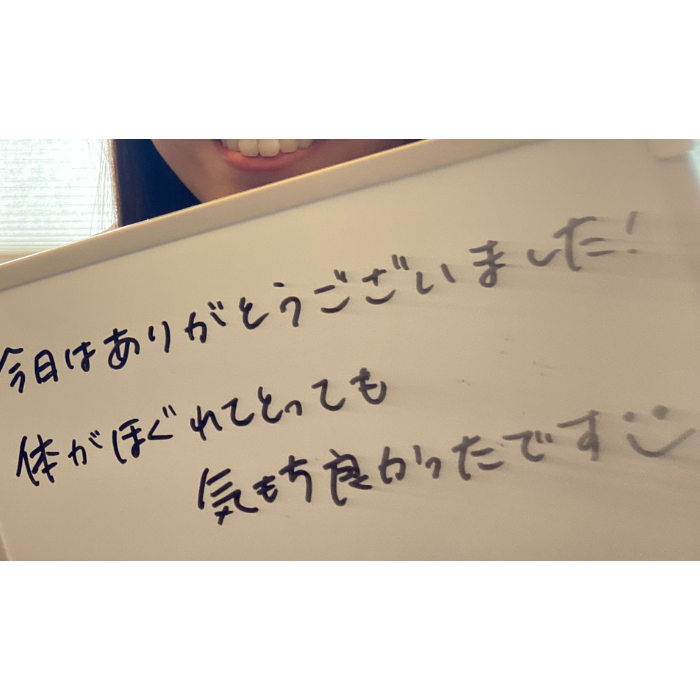 今日はありがとうございました!
体がほぐれてとっても
気もち良かったです